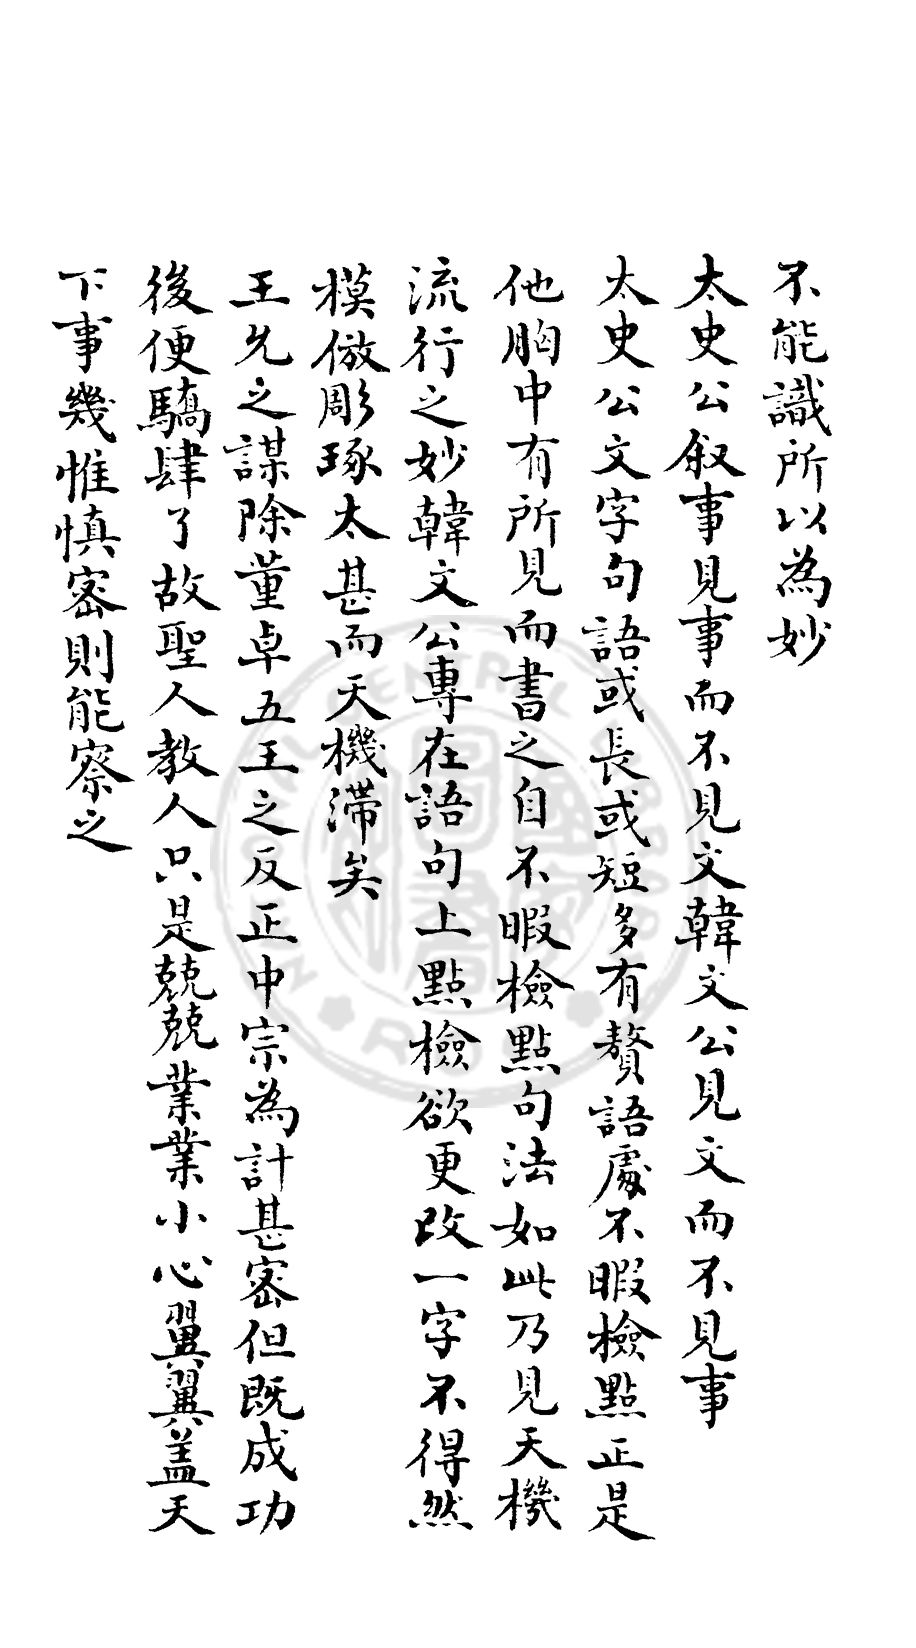 不能識所以為妙
太史公叙事見事而不見文韓文公見文而不見事
太史公文字句語或長或短多有贅語處不暇檢點正是
他胸中有所見而書之自不暇檢點句法如此乃見天機
流行之妙韓文公專在語句上點檢欲更改一字不得然
模倣彫琢太甚而天機滯矣
王允之謀除董卓五王之反正中宗為計甚密但既成功
後便驕肆了故聖人教人只是兢兢業業小心翼翼盖天
下事幾惟慎密則能察之
NATIONAL CENTRAL LIBRARY